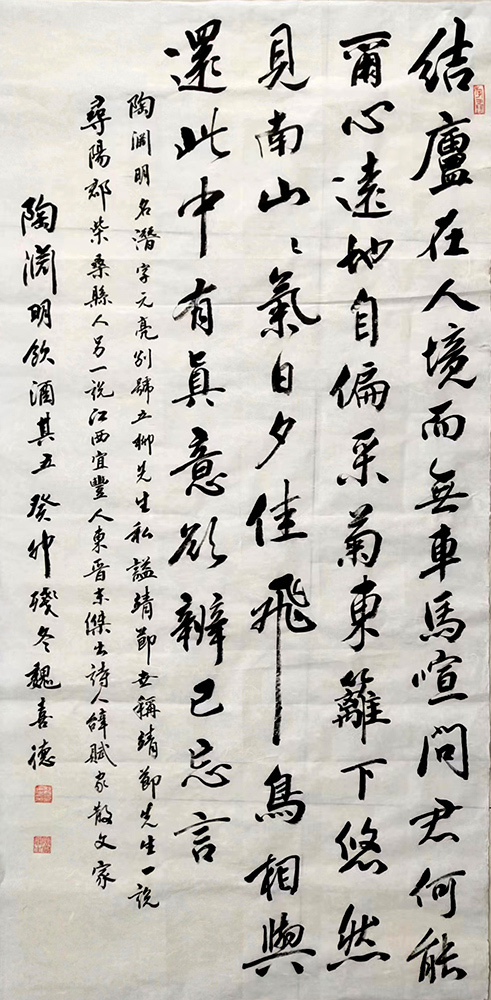 結廬在人境而無車馬喧問君何能
爾心遠地自偏采菊東籬下悠然
見南山山氣日夕佳飛鳥相與
還此中有真意欲辨已忘言
陶渊明名潜字元亮别號五柳先生私謚靖節世稱靖節先生一説
尋陽郡柴桑縣人另一説江西宜豐人東晋末傑出詩人辭賦家散文家
陶渊明飲酒其五癸卯殘冬魏喜德